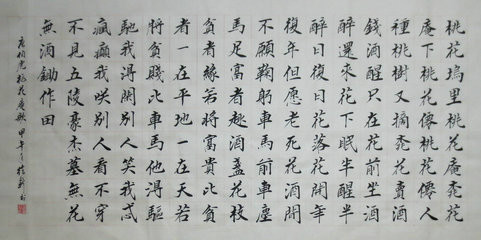 桃花塢里桃花庵桃花
庵下桃花僊桃花僊人
種桃樹又摘桃花賣酒
錢酒醒只在花前坐酒
醉還來花下眠半醒半
醉日復日花落花開年
復年但願老死花酒間
不願鞠躬車馬前車塵
馬足富者趣酒盞花枝
貧者緣若將富貴比貧
者一在平地一在天若
將貧賤比車馬他淂驅
馳我淂閑別人笑我忒
瘋癲我咲別人看不穿
不見五陵豪杰墓無花
無酒鋤作田
唐伯虎桃花庵歌 甲午